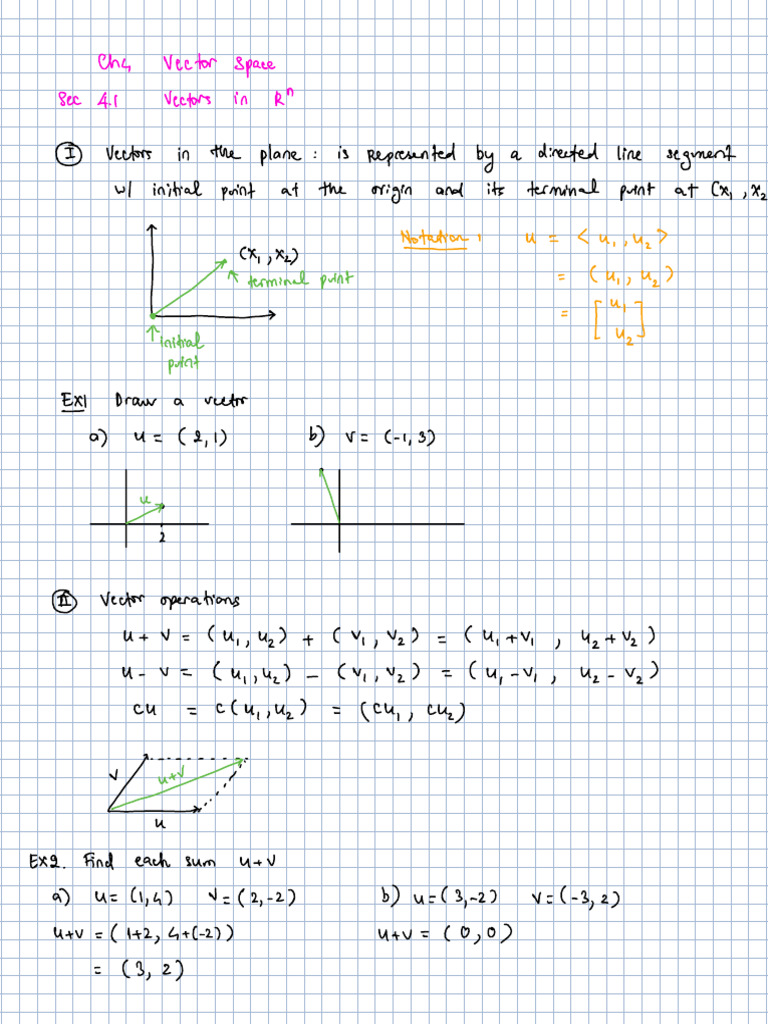 Ch4 Vector Space
Sec 4.1 Vectors in R^n
I Vectors in the plane : is represented by a directed line segment
w/ initial point at the origin and its terminal point at (x₁, x₂
(x₁, x₂)
terminal point
initial
point
Notation : u = <u₁, u₂>
= (u₁, u₂)
= [u₁
u₂]
Ex1 Draw a vector
a) u = (2,1) b) v = (-1, 3)
u
2
II Vector operations
u + v = (u₁, u₂) + (v₁, v₂) = (u₁+v₁ , u₂+v₂)
u - v = (u₁, u₂) - (v₁, v₂) = (u₁-v₁ , u₂-v₂)
cu = c(u₁, u₂) = (cu₁, cu₂)
v
u+v
u
Ex2. Find each sum u+v
a) u = (1,4) v = (2,-2) b) u = (3,-2) v = (-3, 2)
u+v = (1+2, 4+(-2)) u+v = (0, 0)
= (3, 2)